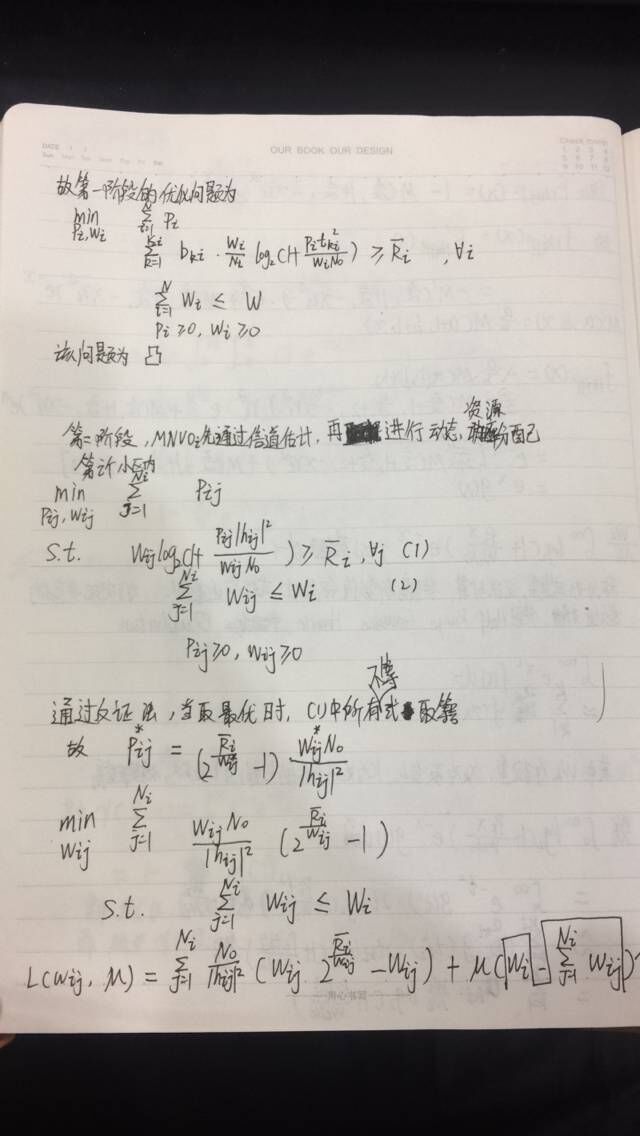 DATE
OUR BOOK OUR DESIGN
故第一阶段的优化问题为
min Σ_{i=1}^{N} Pi
Pi,Wi
Σ_{k=1}^{Ki} bki · Wi/Ni log₂(1+ Pi tki²/WiN0) ≥ R̄i , ∀i
Σ_{i=1}^{N} Wi ≤ W
Pi ≥0, Wi ≥0
该问题为 凸
第二阶段, MNVO先通过信道估计, 再 进行动态 资源 分配
第i个小区内
min Σ_{j=1}^{Ni} Pij
Pij, Wij
s.t. Wij log₂(1+ Pij|hij|²/WijN0) ≥ R̄i, ∀j (1)
Σ_{j=1}^{Ni} Wij ≤ Wi (2)
Pij≥0, Wij≥0
通过反证法, 当取最优时, (1)中所有不等式取等
故 Pij* = (2^{R̄i/Wij*} -1) Wij*N0/|hij|²
min Σ_{j=1}^{Ni} WijN0/|hij|² (2^{R̄i/Wij} -1)
Wij
s.t. Σ_{j=1}^{Ni} Wij ≤ Wi
L(Wij, μ) = Σ_{j=1}^{Ni} N0/|hij|² (Wij 2^{R̄i/Wij} -Wij) + μ(Wi - Σ_{j=1}^{Ni} Wij)